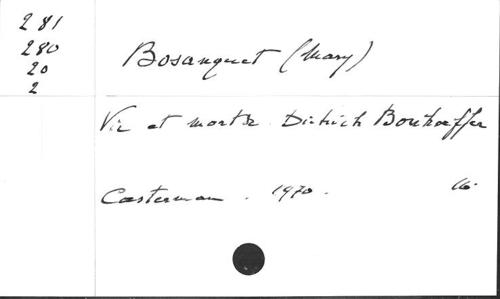 281
280
20
2
Bosanquet (Mary)
Vie et mort de Dietrich Bonhoeffer
Casterman. 1970. 16.